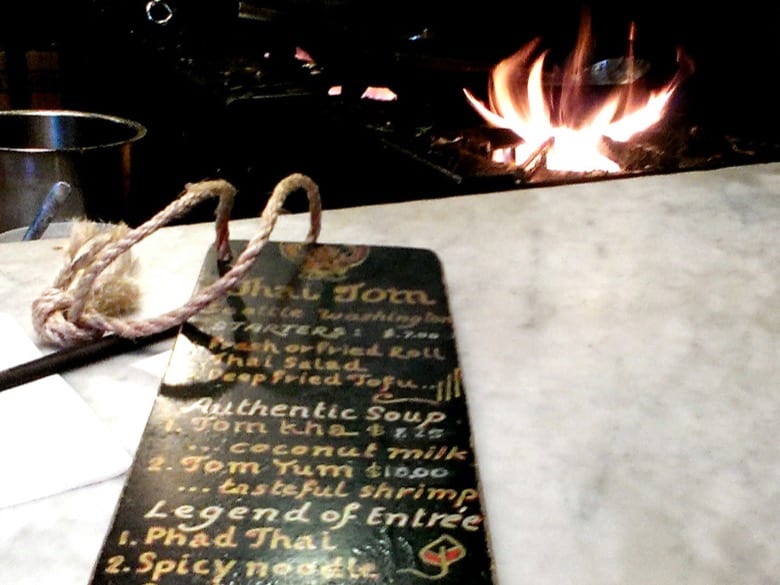 Thai Tom
Seattle Washington
STARTERS: $.7.00
Fresh or fried Roll
Thai Salad
Deep fried Tofu..
Authentic Soup
1. Tom Kha $ 8.25
... coconut milk
2. Tom Yum $10.00
... tasteful shrimp
Legend of Entrée
1. Phad Thai
2. Spicy noodle